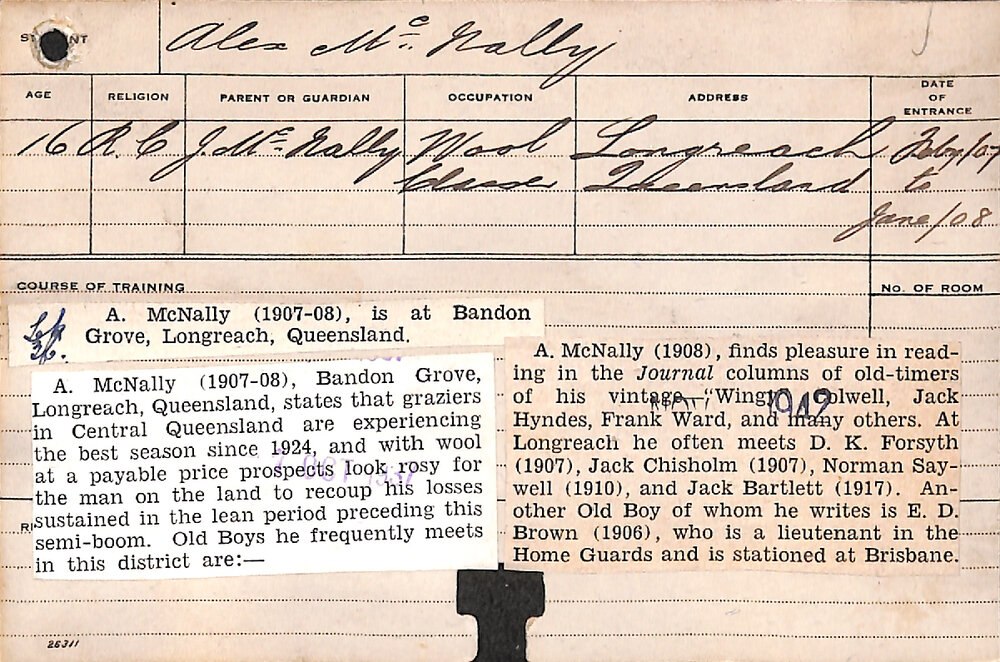 Alex McNally
AGE RELIGION PARENT OR GUARDIAN OCCUPATION ADDRESS DATE OF ENTRANCE
16 R.C J. McNally Wool Longreach Feby/07
Classer Queensland to
June/08
COURSE OF TRAINING
No. OF ROOM
A. McNally (1907-08), is at Bandon
Grove, Longreach, Queensland.
A. McNally (1907-08), Bandon Grove,
Longreach, Queensland, states that graziers
in Central Queensland are experiencing
the best season since 1924, and with wool
at a payable price prospects look rosy for
the man on the land to recoup his losses
sustained in the lean period preceding this
semi-boom. Old Boys he frequently meets
in this district are:—
OCT 1937
A. McNally (1908), finds pleasure in read-
ing in the Journal columns of old-timers
of his vintage—"Wingy" Colwell, Jack
Hyndes, Frank Ward, and many others. At
Longreach he often meets D. K. Forsyth
(1907), Jack Chisholm (1907), Norman Say-
well (1910), and Jack Bartlett (1917). An-
other Old Boy of whom he writes is E. D.
Brown (1906), who is a lieutenant in the
Home Guards and is stationed at Brisbane.
1942
26311